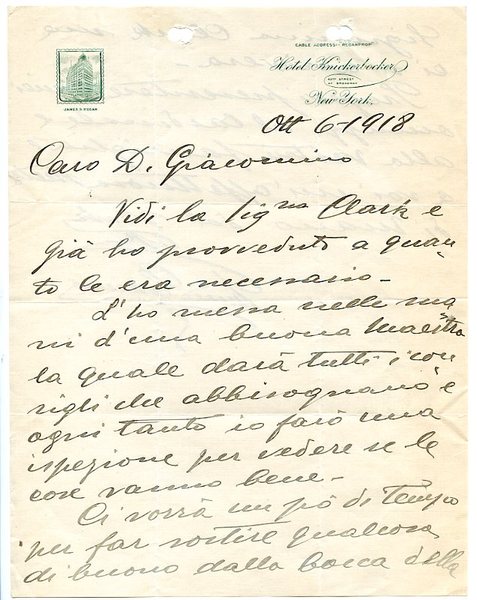 CABLE ADDRESS - REGANPROF
Hotel Knickerbocker
42ND STREET
AT BROADWAY
New York.
JAMES B. REGAN
Ott 6-1918
Caro D. Giacomino
Vidi la Signa Clark e
già ho provveduto a quan-
to le era necessario -
L'ho messa nelle ma
ni d'una buona Maestra
la quale darà tutti i con
sigli che abbisognano e
ogni tanto io farò una
ispezione per vedere se le
cose vanno bene -
Ci vorrà un pò di tempo
per far sortire qualcosa
di buono dalla bocca della